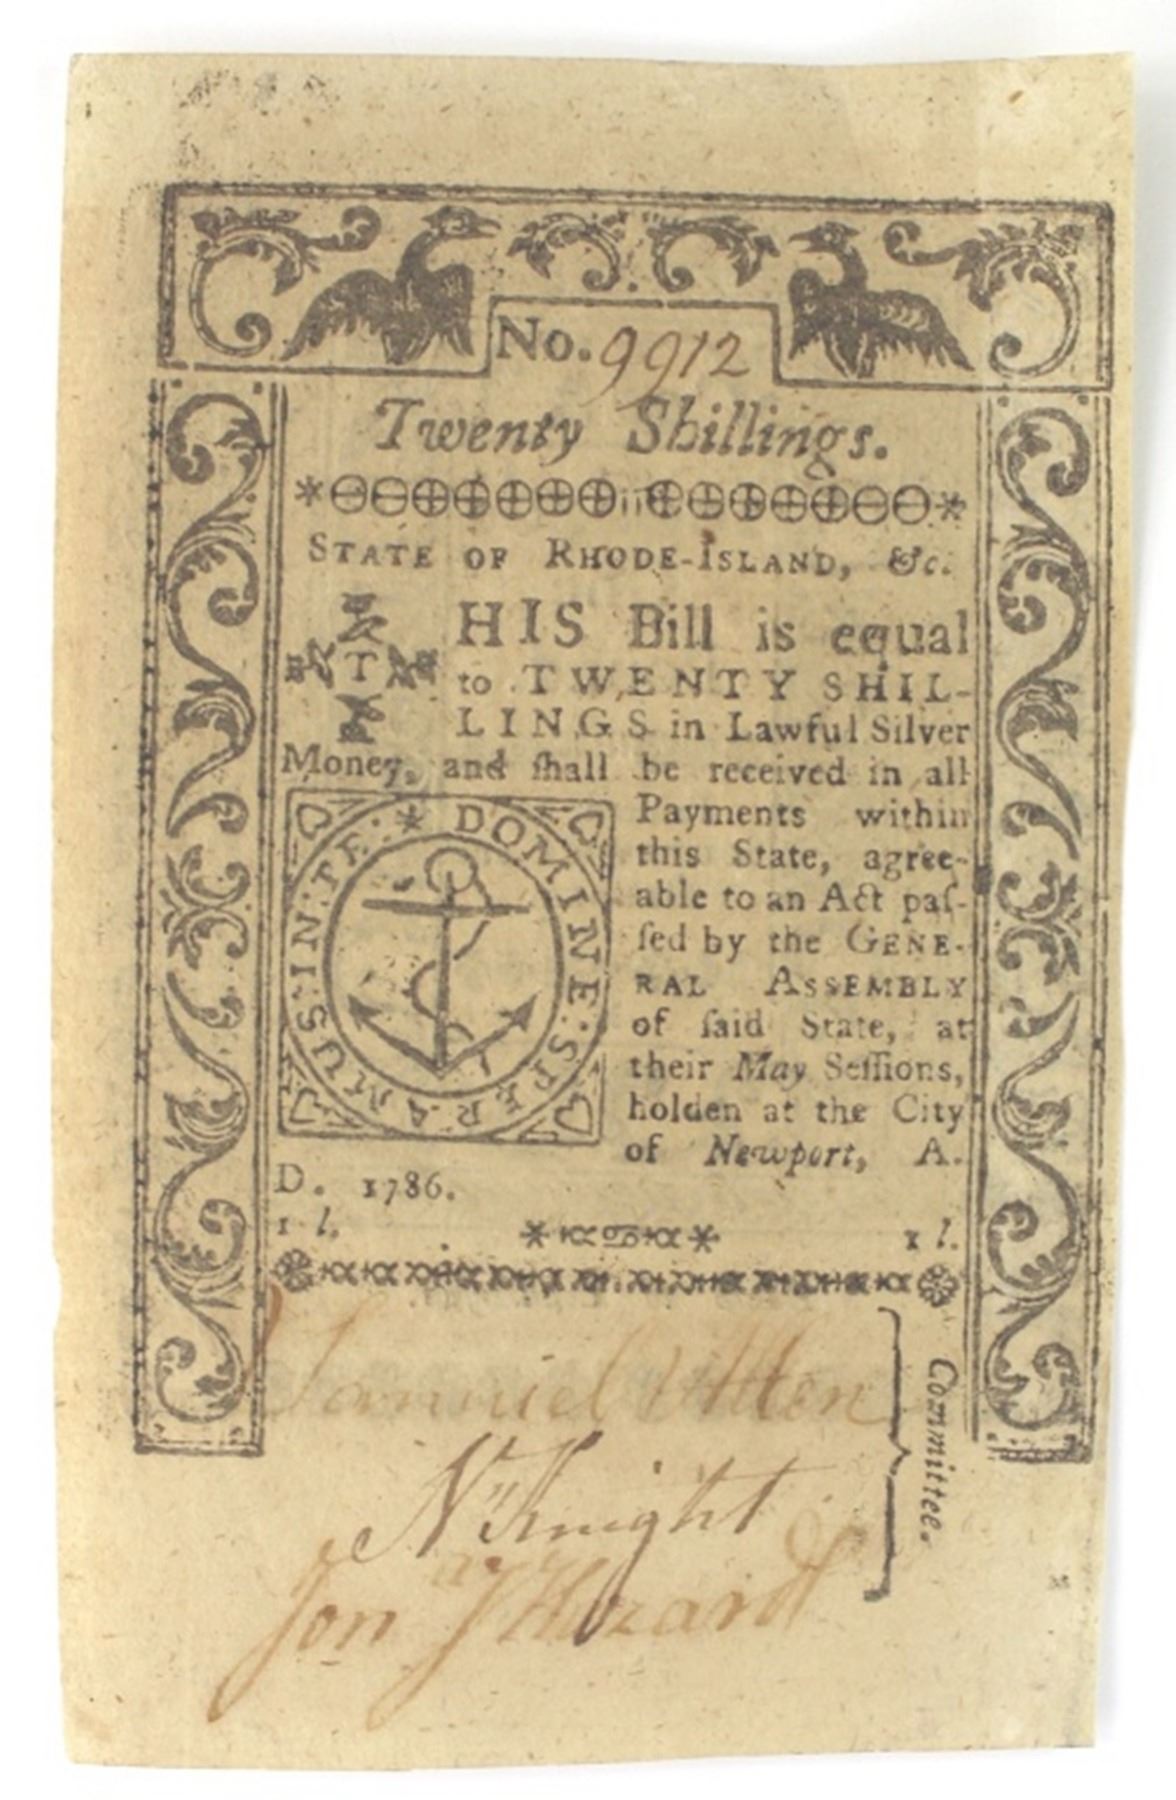 No. 9912
Twenty Shillings.
STATE OF RHODE-ISLAND, &c.
THIS Bill is equal
to TWENTY SHIL-
LINGS in Lawful Silver
Money, and ſhall be received in all
Payments within
this State, agree-
able to an Act paſ-
ſed by the GENE-
RAL ASSEMBLY
of ſaid State, at
their May Seſſions,
holden at the City
of Newport, A.
D. 1786.
DOMINE: SPERAMUS: IN: TE:
1 l. 1 l.
Samuel Allen
N Knight
Jon J Hazard
Committee.